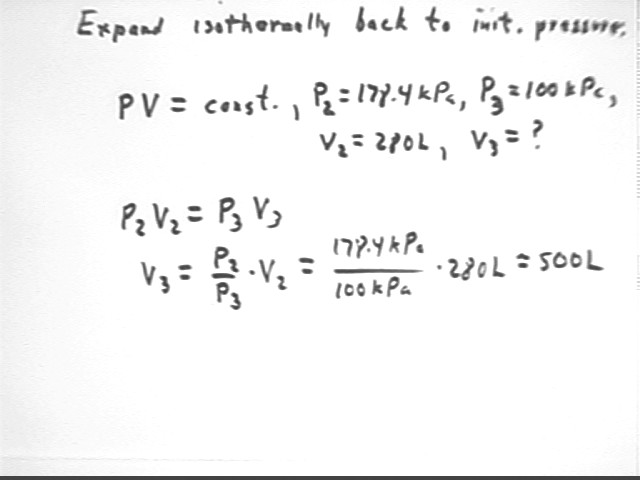 Expand isothermally back to init. pressure.
PV = const., P₂ = 178.4 kPa, P₃ = 100 kPa,
V₂ = 280L, V₃ = ?
P₂V₂ = P₃V₃
V₃ = P₂/P₃ · V₂ = 178.4 kPa/100 kPa · 280L = 500L